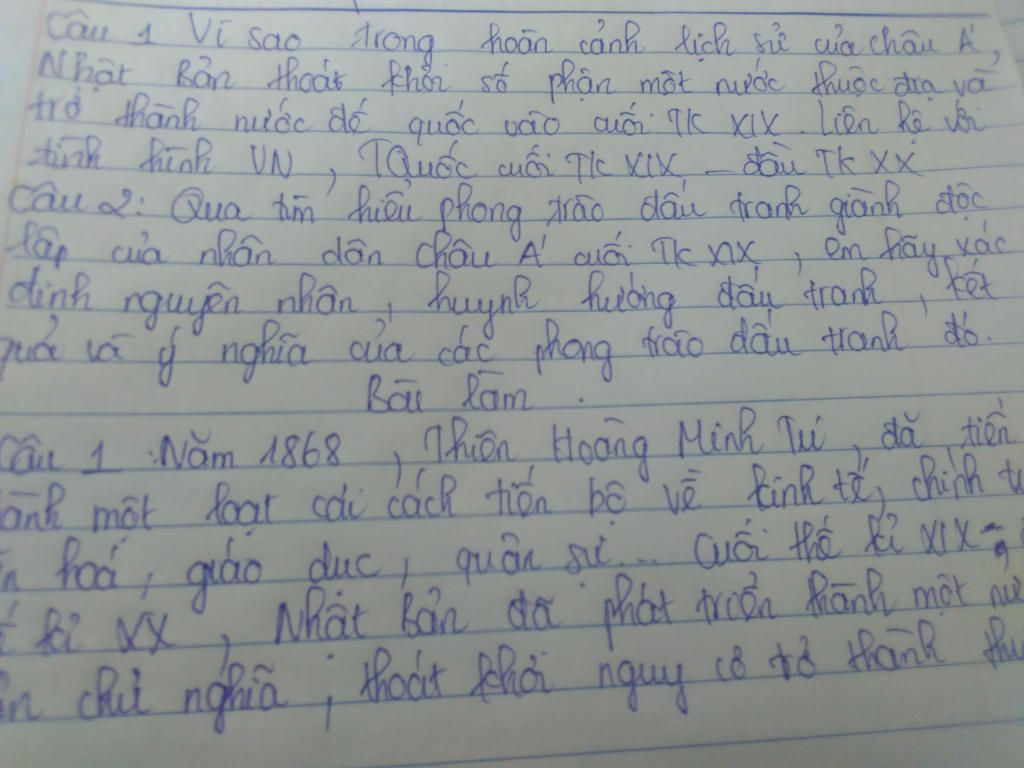 Câu 1 Vì sao trong hoàn cảnh lịch sử của châu Á,
Nhật Bản thoát khỏi số phận một nước thuộc địa và
trở thành nước đế quốc vào cuối TK XIX. Liên hệ với
tình hình VN, TQuốc cuối TK XIX - đầu TK XX
Câu 2: Qua tìm hiểu phong trào đấu tranh giành độc
lập của nhân dân châu Á cuối TK XIX, em hãy xác
định nguyên nhân, huynh hướng đấu tranh, kết
quả và ý nghĩa của các phong trào đấu tranh đó.
Bài làm.
Câu 1 Năm 1868, Thiên Hoàng Minh Trị, đã tiến
hành một loạt cải cách tiến bộ về kinh tế, chính
hoá, giáo dục, quân sự... Cuối thế kỉ XIX -
kỉ XX, Nhật Bản đã phát triển thành một
chủ nghĩa, thoát khỏi nguy cơ trở thành